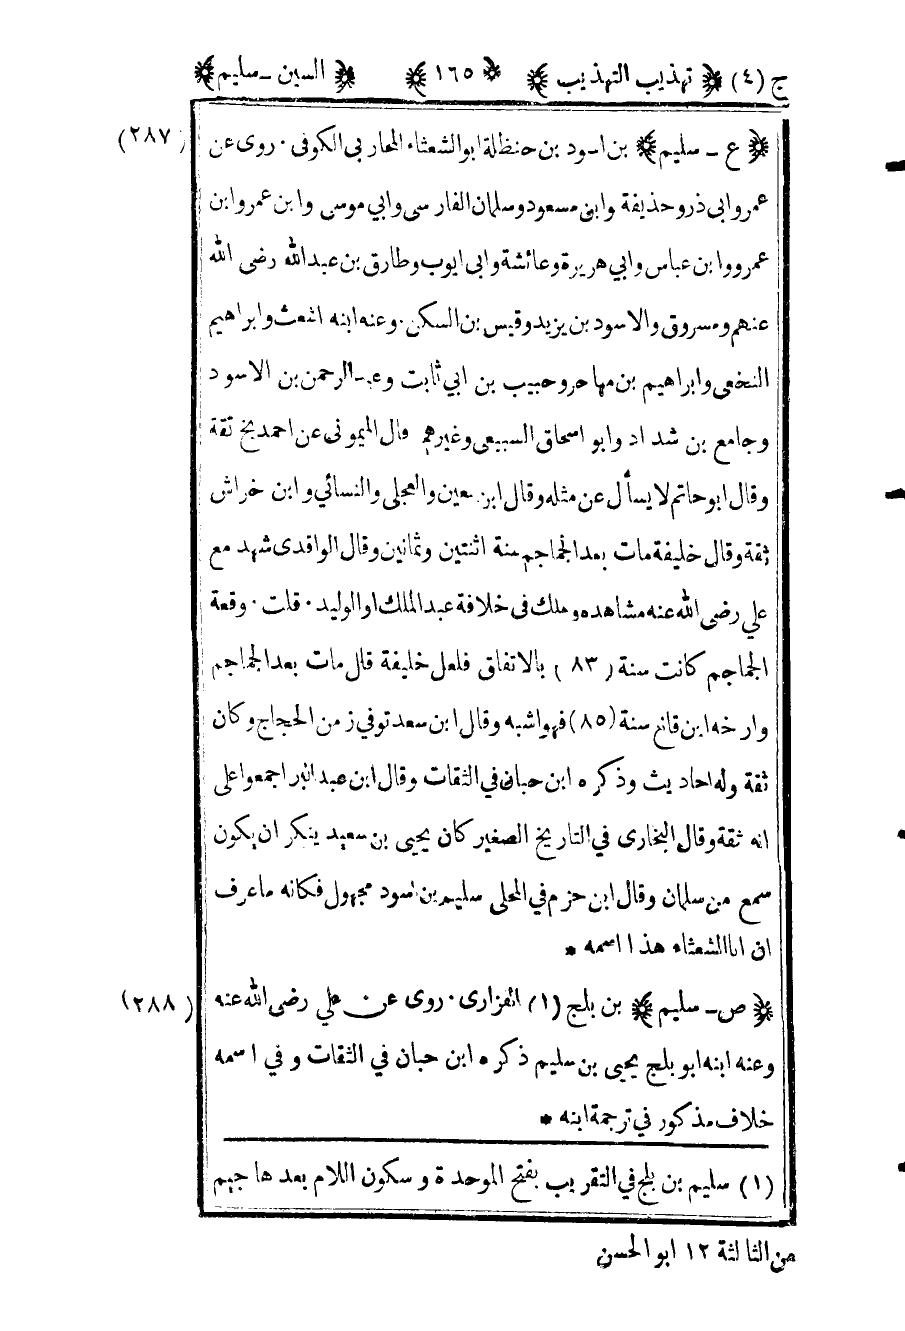 ج (٤) ﴿ تهذيب التهذيب ﴾ ﴿ ١٦٥ ﴾ ﴿ السين - سليم ﴾
(٢٨٧) ﴿ ع - سليم ﴾ بن اسود بن حنظلة ابو الشعثاء المحاربى الكوفى · روى عن
عمر وابى ذر وحذيفة وابن مسعود وسلمان الفارسى وابي موسى وابن عمر وابن
عمرو وابن عباس وابي هريرة وعائشة وابى ايوب وطارق بن عبد الله رضى الله
عنهم ومسروق والاسود بن يزيد وقيس بن السكن · وعنه ابنه اشعث وابراهيم
النخعى وابراهيم بن مهاجر وحبيب بن ابي ثابت وعبد الرحمن بن الاسود
وجامع بن شداد وابو اسحاق السبيعى وغيرهم قال الميمونى عن احمد بخ ثقة
وقال ابو حاتم لا يسأل عن مثله وقال ابن معين والعجلى والنسائي وابن خراش
ثقة وقال خليفة مات بعد الجماجم سنة اثنتين وثمانين وقال الواقدى شهد مع
علي رضى الله عنه مشاهده وهلك فى خلافة عبد الملك او الوليد · قلت · وقعة
الجماجم كانت سنة (٨٣) بالاتفاق فلعل خليفة قال مات بعد الجماجم
وارخه ابن قانع سنة (٨٥) فهو اشبه وقال ابن سعد توفي زمن الحجاج وكان
ثقة وله احاديث وذكره ابن حبان في الثقات وقال ابن عبد البر اجمعوا على
انه ثقة وقال البخارى في التاريخ الصغير كان يحيى بن سعيد ينكر ان يكون
سمع من سلمان وقال ابن حزم في المحلى سليم بن اسود مجهول فكانه ما عرف
ان ابا الشعثاء هذا اسمه *
(٢٨٨) ﴿ ص - سليم ﴾ بن بلج (١) الفزارى · روى عن علي رضى الله عنه
وعنه ابنه ابو بلج يحيى بن سليم ذكره ابن حبان في الثقات وفي اسمه
خلاف مذكور في ترجمة ابنه *
(١) سليم بن بلج في التقريب بفتح الموحدة وسكون اللام بعدها جيم
من الثالثة ١٢ ابو الحسن